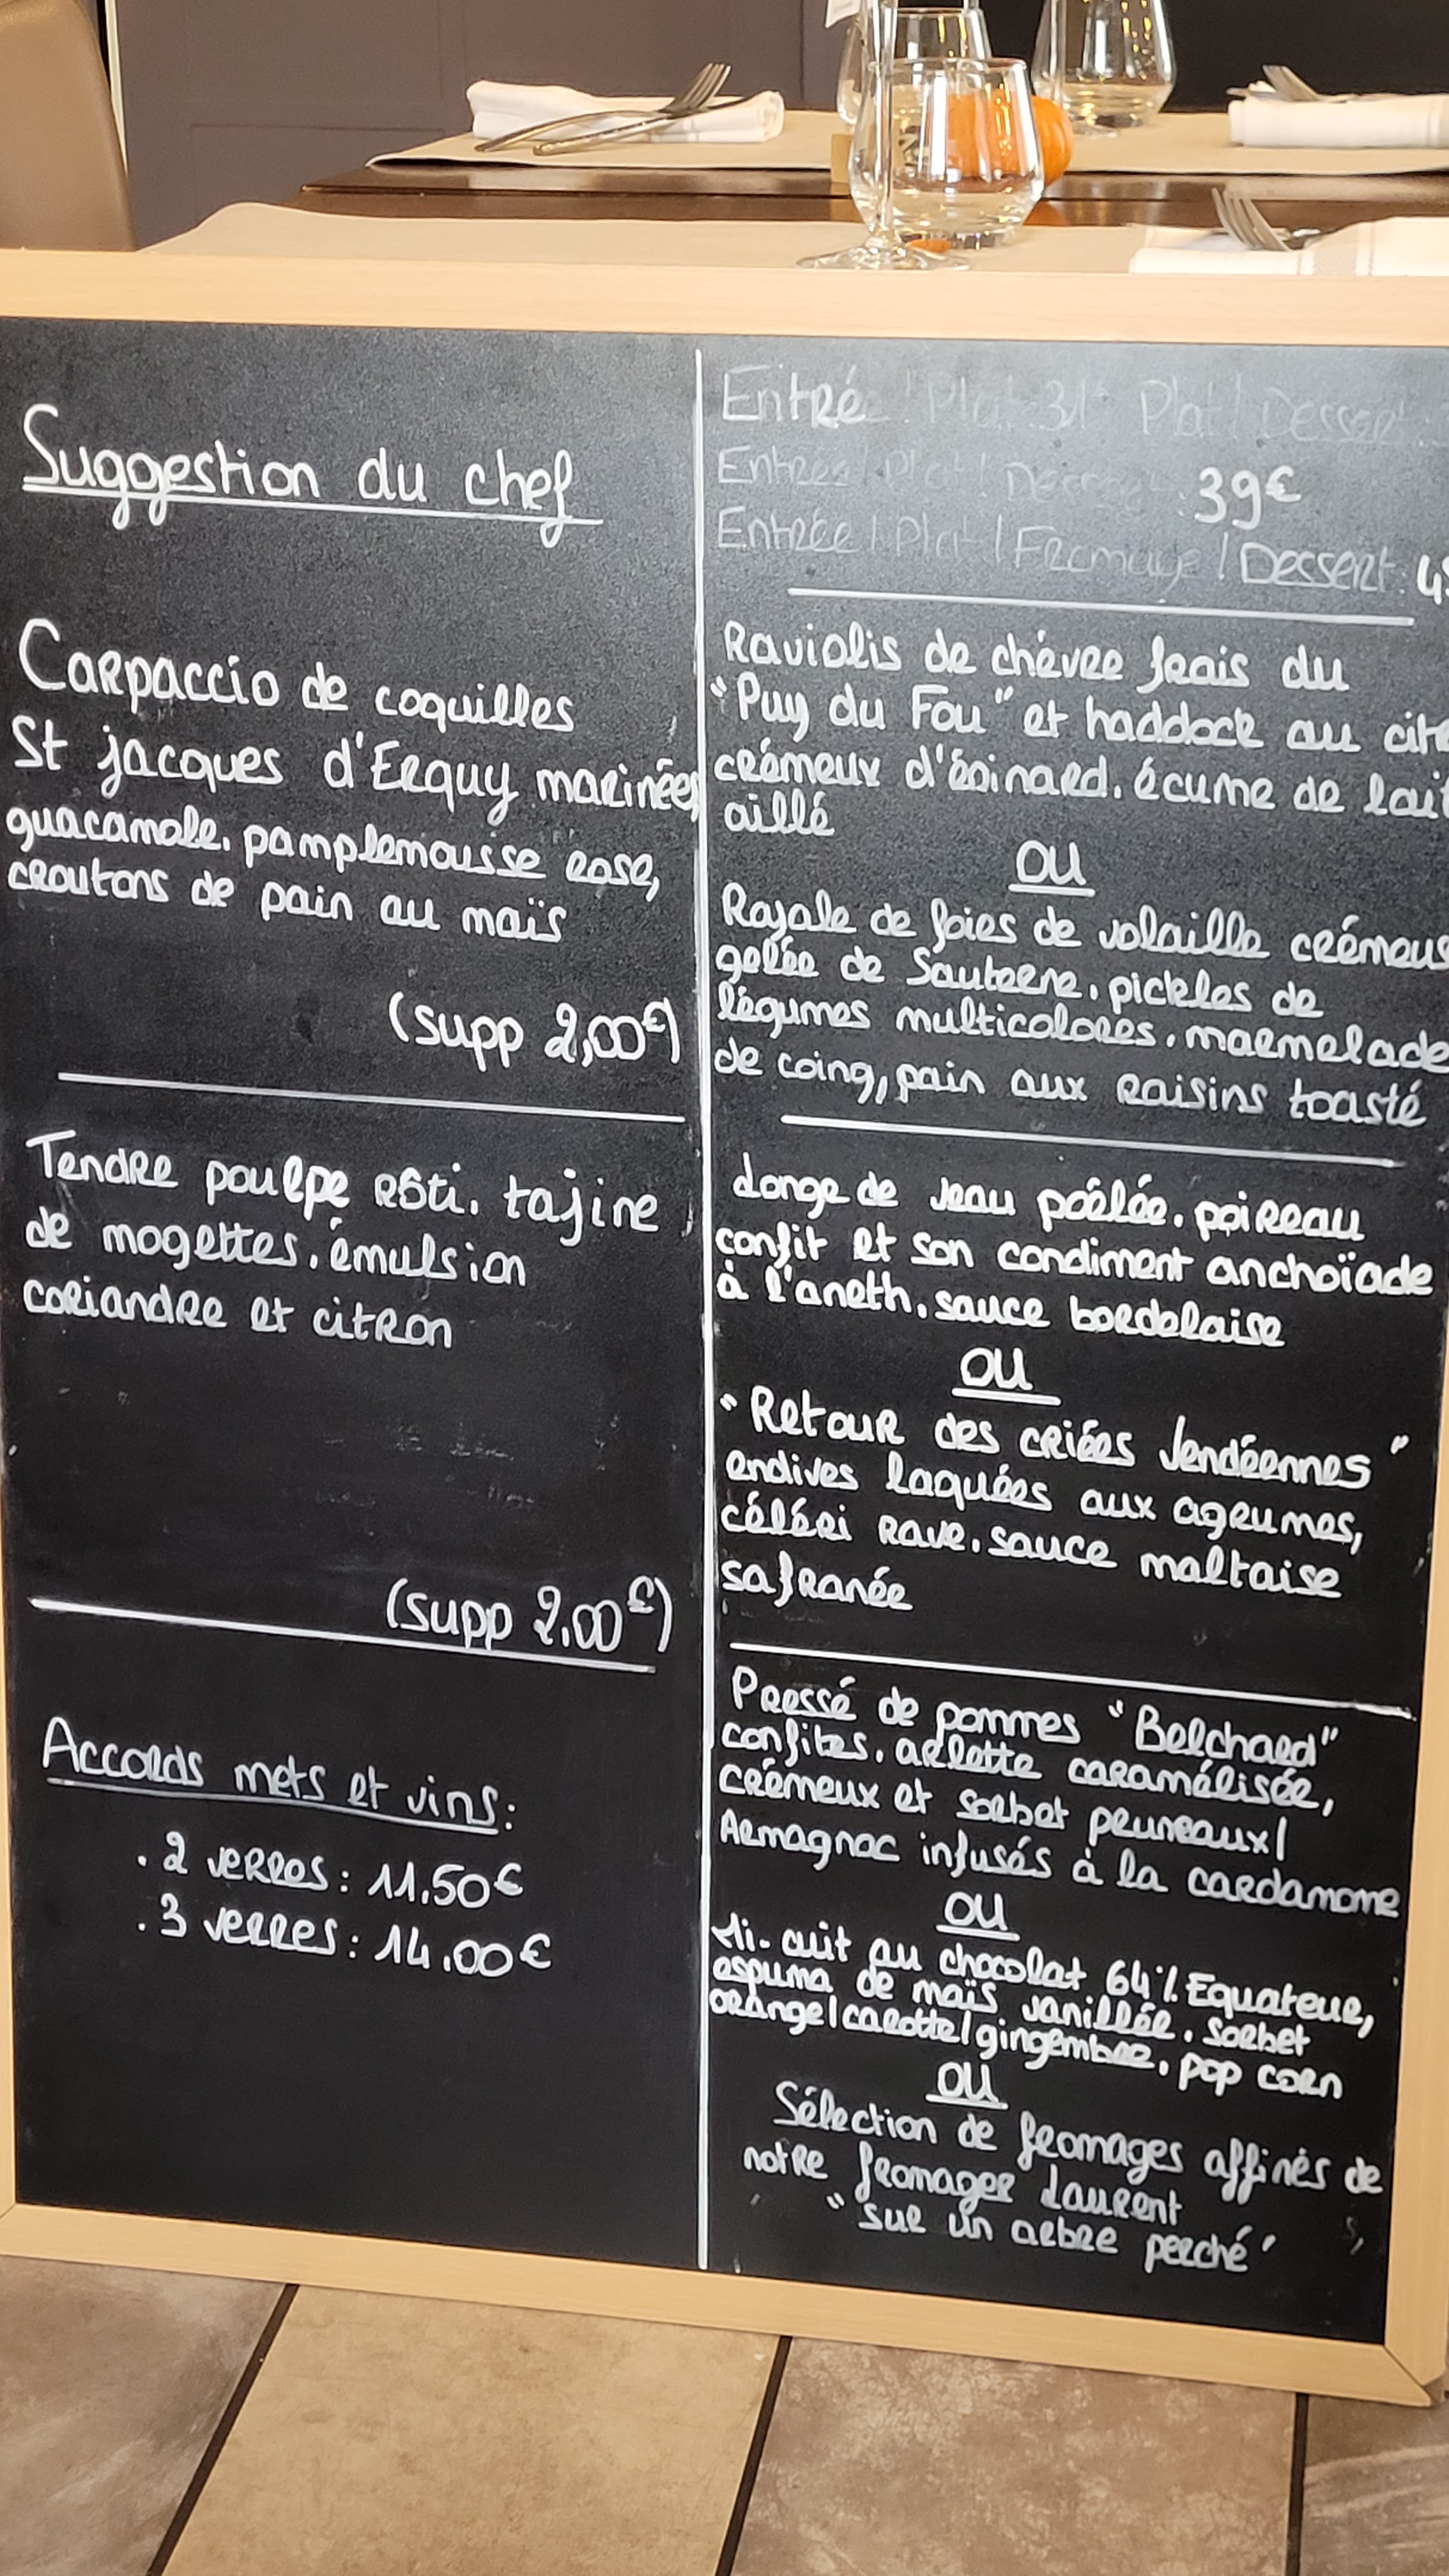 Suggestion du chef
Carpaccio de coquilles
St jacques d'Erquy marinées
guacamole, pamplemousse rose,
croutons de pain au maïs
(supp 2,00€)
Tendre poulpe rôti, tajine
de mogettes, émulsion
coriandre et citron
(supp 2,00€)
Accords mets et vins:
. 2 verres : 11,50€
. 3 verres : 14,00€
Entrée / Plat : 31 Plat / Dessert
Entrée / Plat / Dessert : 39€
Entrée / Plat / Fromage / Dessert :
Raviolis de chèvre frais du
"Puy du Fou" et haddock au
crémeux d'épinard, écume de lait
aillé
OU
Royale de foies de volaille
gelée de Sauterne, pickles de
légumes multicolores, marmelade
de coing, pain aux raisins toasté
Longe de veau poélée, poireau
confit et son condiment anchoïade
à l'aneth, sauce bordelaise
OU
"Retour des criées Vendéennes"
endives laquées aux agrumes,
céléri rave, sauce maltaise
safranée
Pressé de pommes "Belchard"
confites, arlette caramélisée,
crémeux et sorbet pruneaux/
Armagnac infusés à la cardamome
OU
Mi-cuit au chocolat 64% Equateur,
espuma de maïs vanillée, sorbet
orange/carotte/gingembre, pop corn
OU
Sélection de fromages affinés de
notre fromager Laurent
"sur un arbre perché"